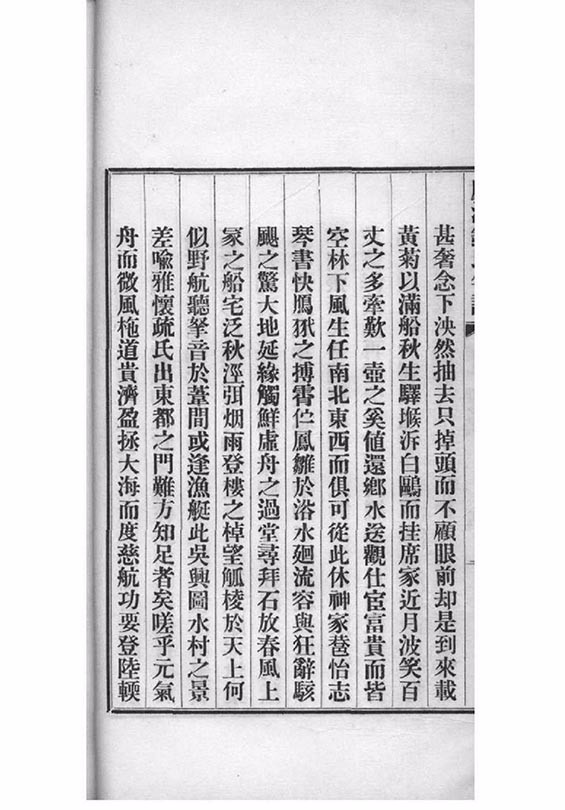 甚奢念下泱然抽去只掉頭而不顧眼前却是到來載
黃菊以滿船秋生驛堠泝白鷗而挂席家近月波笑百
丈之多牽歎一壺之奚値還鄉水送觀仕宦富貴而皆
空林下風生任南北東西而俱可從此休神家巷怡志
琴書快鵰狘之搏霄伫鳳雛於浴水廻流容與狂辭駭
颶之驚大地延緣觸鮮虛舟之過堂尋拜石放春風上
冢之船宅泛秋涇弭烟雨登樓之棹望觚棱於天上何
似野航聽拏音於葦間或逢漁艇此吳興圖水村之景
差喩雅懷疏氏出東都之門難方知足者矣嗟乎元氣
舟而微風柂道貴濟盈拯大海而度慈航功要登陸輭